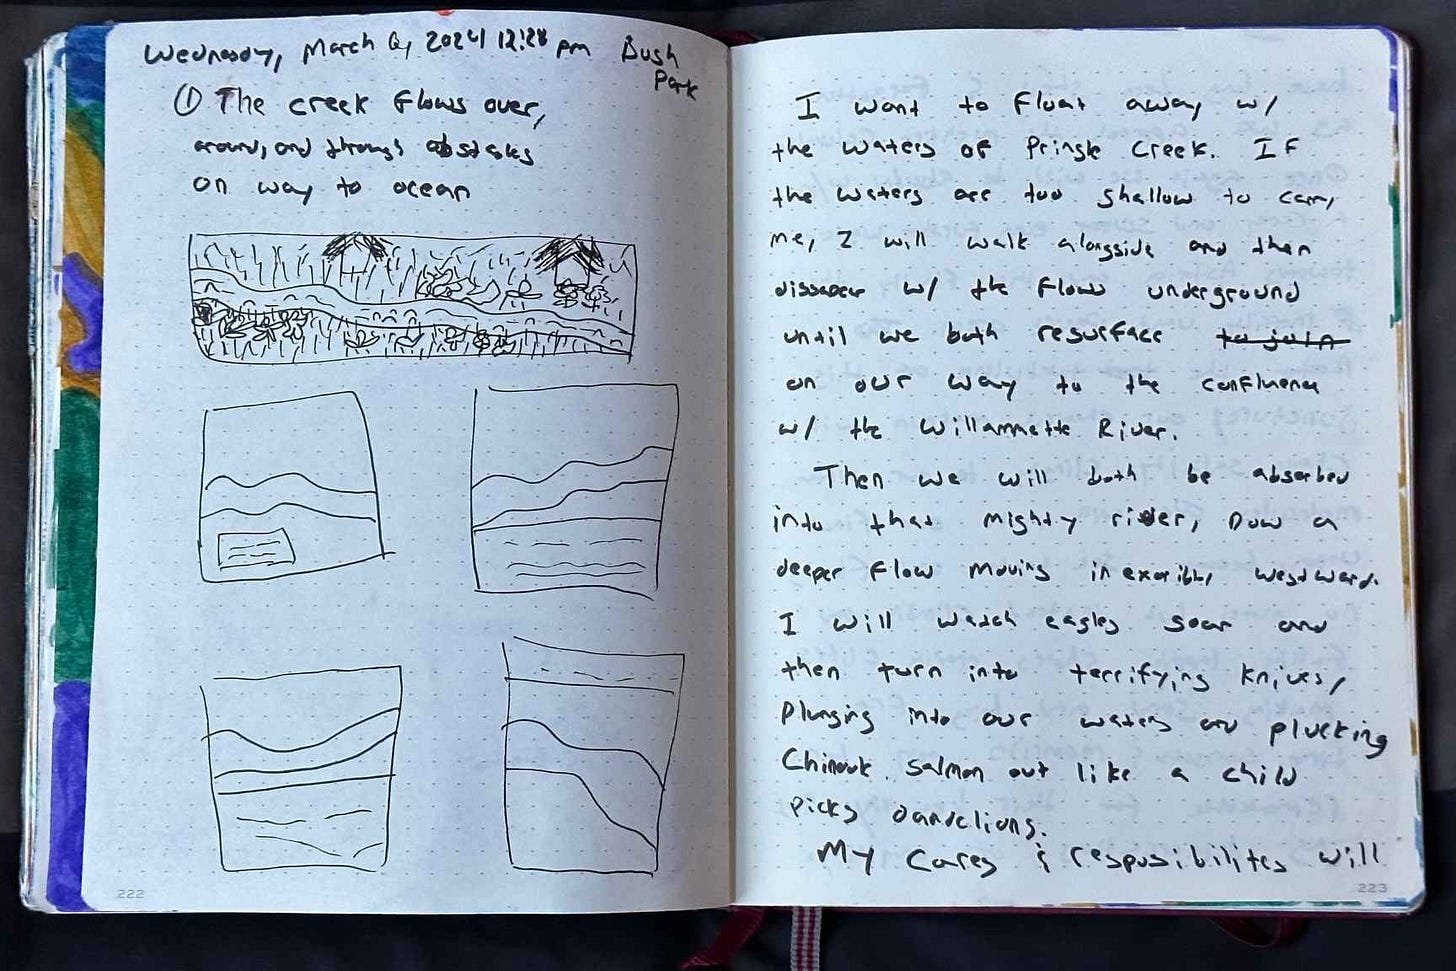 Wednesday, March 6, 2024 12:28 pm Bush
Park
① The creek flows over,
around, and through obstacles
on way to ocean
222
I want to float away w/
the waters of Pringle Creek. If
the waters are too shallow to carry
me, I will walk alongside and then
dissapear w/ the flows underground
until we both resurface to join
on our way to the confluence
w/ the Willamette River.
Then we will both be absorbed
into that mighty river, now a
deeper flow moving inexoribly westward.
I will watch eagles soar and
then turn into terrifying knives,
plunging into our waters and plucking
Chinook salmon out like a child
picks dandelions.
My cares & resposibilites will
223